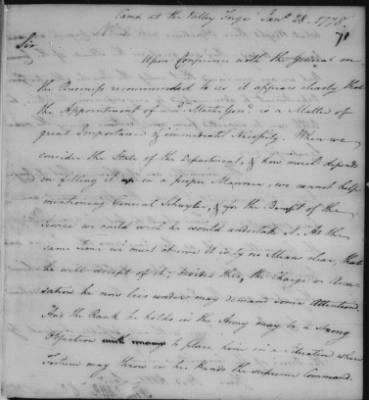 Camp at the Valley Forge Jany 28. 1778.
71
Sir
Upon Conference with the General on
the Business recommended to us it appears clearly that
the Appointment of a Qr Master Genl is a Matter of
great Importance & immediate Necessity. When we
consider the State of the Department, & how much depends
on filling it up in a proper Manner, we cannot help
mentioning General Schuyler, & for the Benefit of the
Service we could wish he would undertake it. At the
same Time we must observe it is by no Means clear, that
he will accept of it; besides this, the Charge or Accu-
sation he now lies under may demand some Attention.
And the Rank he holds in the Army may be a strong
Objection to place him in a Situation where
Fortune may throw in his Hands the supreme Command.